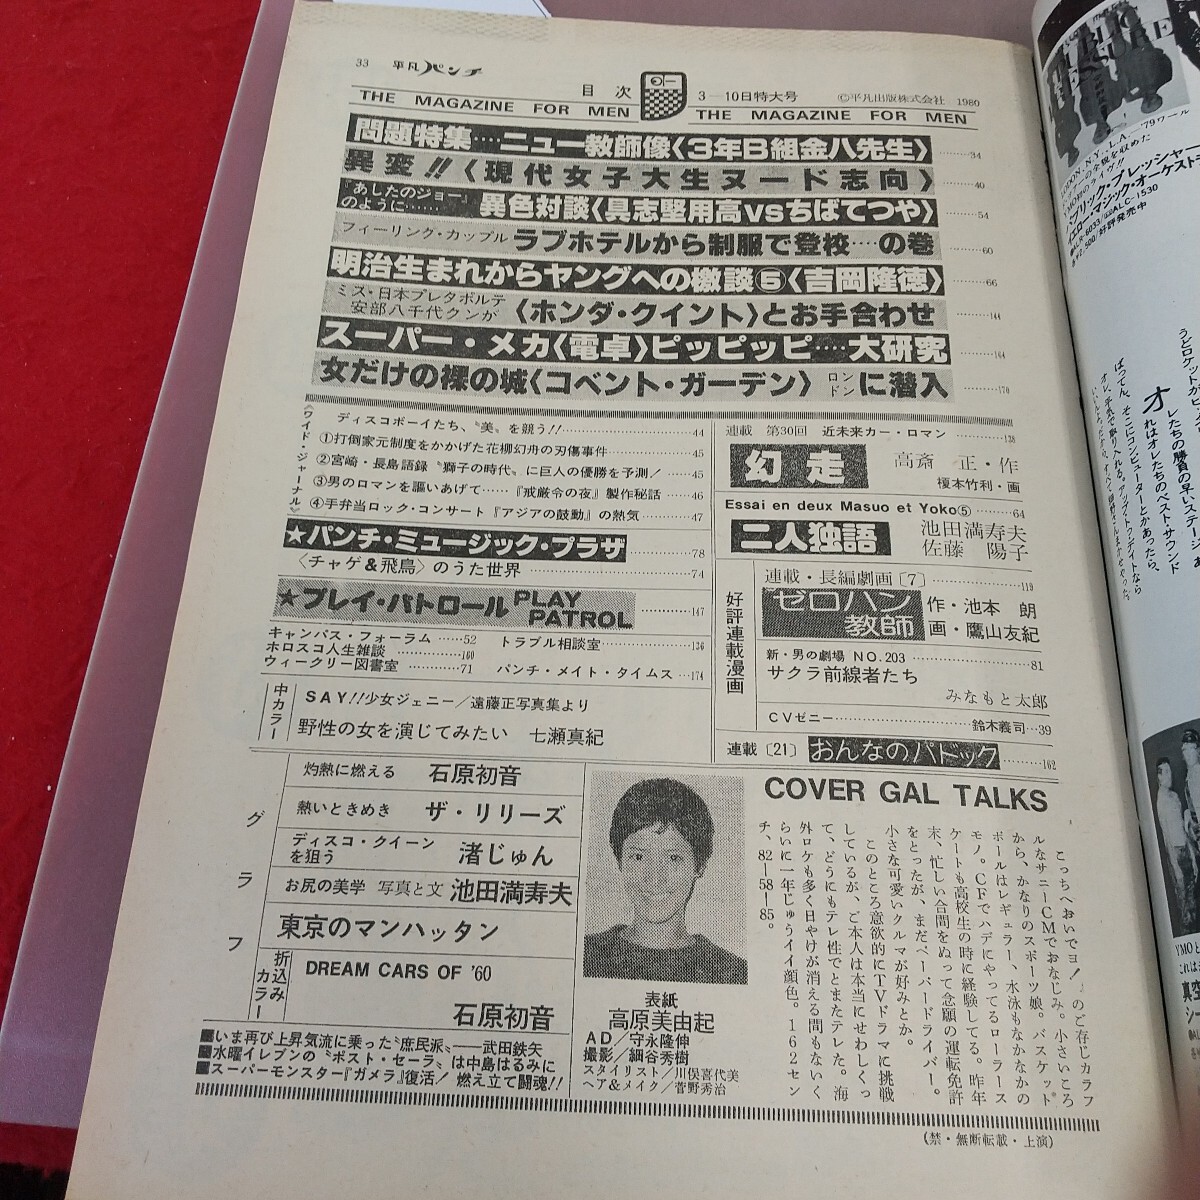 33 平凡パンチ
目次
3―10日特大号
©平凡出版株式会社 1980
THE MAGAZINE FOR MEN
THE MAGAZINE FOR MEN
問題特集‥‥ニュー教師像〈3年B組金八先生〉………34
異変!!〈現代女子大生ヌード志向〉………40
『あしたのジョー』のように……
異色対談〈具志堅用高vsちばてつや〉………54
フィーリング・カップル ラブホテルから制服で登校‥‥の巻………60
明治生まれからヤングへの檄談⑤〈吉岡隆徳〉………66
ミス・日本プレタポルテ
安部八千代クンが
〈ホンダ・クイント〉とお手合わせ………144
スーパー・メカ〈電卓〉ピッピッピ‥‥大研究………164
女だけの裸の城〈コベント・ガーデン〉ロンドンに潜入………170
《ワイド・ジャーナル》
ディスコボーイたち、〝美〟を競う!!………44
①打倒家元制度をかかげた花柳幻舟の刃傷事件………45
②宮崎・長島語録〝獅子の時代〟に巨人の優勝を予測!………45
③男のロマンを謳いあげて……『戒厳令の夜』製作秘話………46
④手弁当ロック・コンサート『アジアの鼓動』の熱気………47
★パンチ・ミュージック・プラザ………78
〈チャゲ&飛鳥〉のうた世界………74
★プレイ・パトロール PLAY PATROL………147
キャンパス・フォーラム……52
ホロスコ人生雑談………160
ウィークリー図書室………71
トラブル相談室………136
パンチ・メイト・タイムス…174
中カラー
SAY!!少女ジェニー/遠藤正写真集より
野性の女を演じてみたい 七瀬真紀
連載 第30回 近未来カー・ロマン………138
幻走
高斎 正・作
榎本竹利・画
Essai en deux Masuo et Yoko⑤………64
二人独語
池田満寿夫
佐藤陽子
好評連載漫画
連載・長編劇画〔7〕………119
ゼロハン教師
作・池本 朗
画・鷹山友紀
新・男の劇場 NO.203………81
サクラ前線者たち
みなもと太郎
CVゼニー………鈴木義司…39
連載〔21〕おんなのパドック………162
グラフ
灼熱に燃える 石原初音
熱いときめき ザ・リリーズ
ディスコ・クイーンを狙う 渚じゅん
お尻の美学 写真と文 池田満寿夫
東京のマンハッタン
折込みカラー
DREAM CARS OF '60
石原初音
■いま再び上昇気流に乗った〝庶民派〟――武田鉄矢
■水曜イレブンの〝ポスト・セーラ〟は中島はるみに
■スーパーモンスター『ガメラ』復活! 燃え立て闘魂!!
表紙
高原美由起
AD/守永隆伸
撮影/細谷秀樹
スタイリスト/川俣喜代美
ヘア&メイク/菅野秀治
COVER GAL TALKS
こっちへおいでヨ!』のご存じカラフ
ルなサニーCMでおなじみ。小さいころ
から、かなりのスポーツ娘。バスケット
ボールはレギュラー、水泳もなかなかの
モノ。CFでハデにやってるローラース
ケートも高校生の時に経験してる。昨年
末、忙しい合間をぬって念願の運転免許
をとったが、まだペーパードライバー。
小さな可愛いクルマが好みとか。
このところ意欲的にTVドラマに挑戦
しているが、ご本人は本当にせわしくっ
て、どうにもテレ性でとまたテレた。海
外ロケも多く日やけが消える間もないく
らいに一年じゅうイイ顔色。162セン
チ、82―58―85。
(禁・無断転載・上演)
ODON・N.Y.・L.A.―'79ワール
パブリック・プレッシャー
イエロー・マジック・オーケスト
ALC-1530
好評発売中
オレたちの勝負の早いステージ
おれはオレたちのベスト・サウンド
ばってん、そこにコンピューターとかあったら、